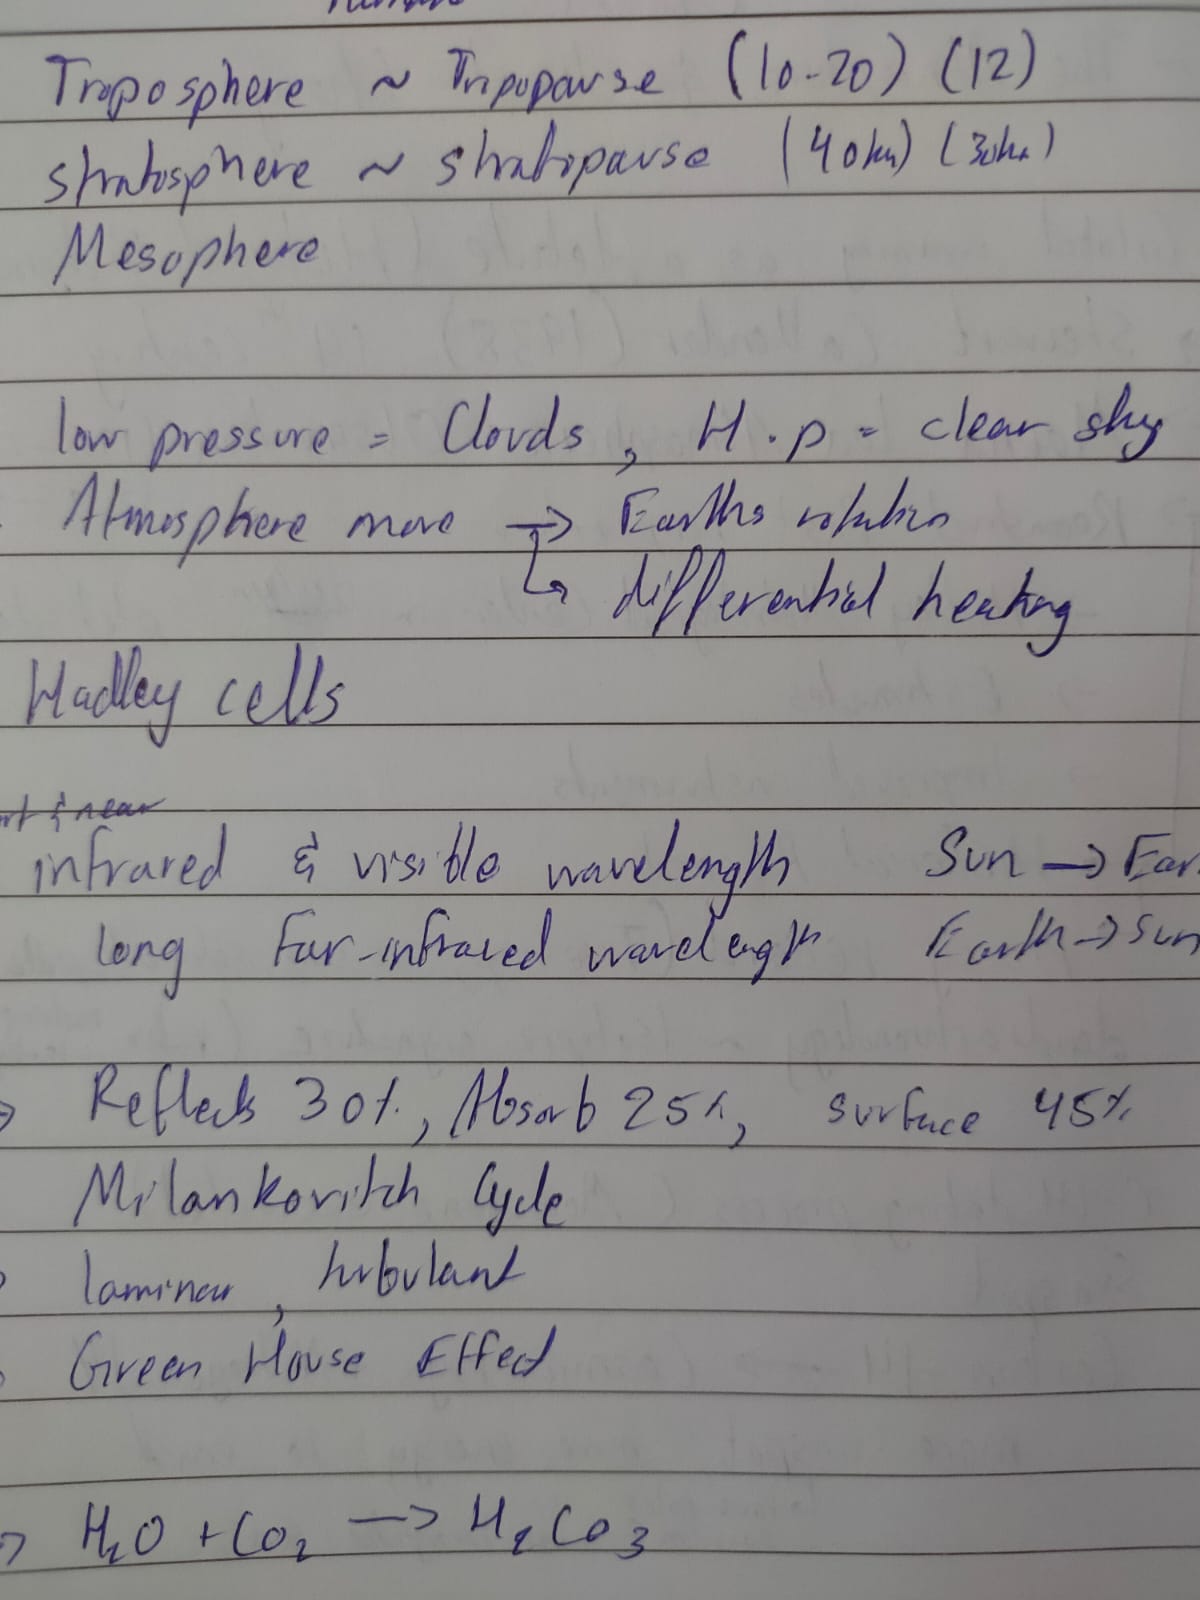 Troposphere ~ Tripopause (10-20) (12)
stratosphere ~ stratopause (40km) (30km)
Mesophere
low pressure = Clouds, H.p = clear sky
Atmosphere move → Earths rotation
↳ differential heating
Hadley cells
& near
infrared & visible wavelength Sun → Ear
long Far-infrared wavelength Earth → Sun
→ Reflects 30%, Absorb 25%, surface 45%
Milankovitch Cycle
laminar, turbulant
Green House Effect
→ H₂O + CO₂ → H₂CO₃